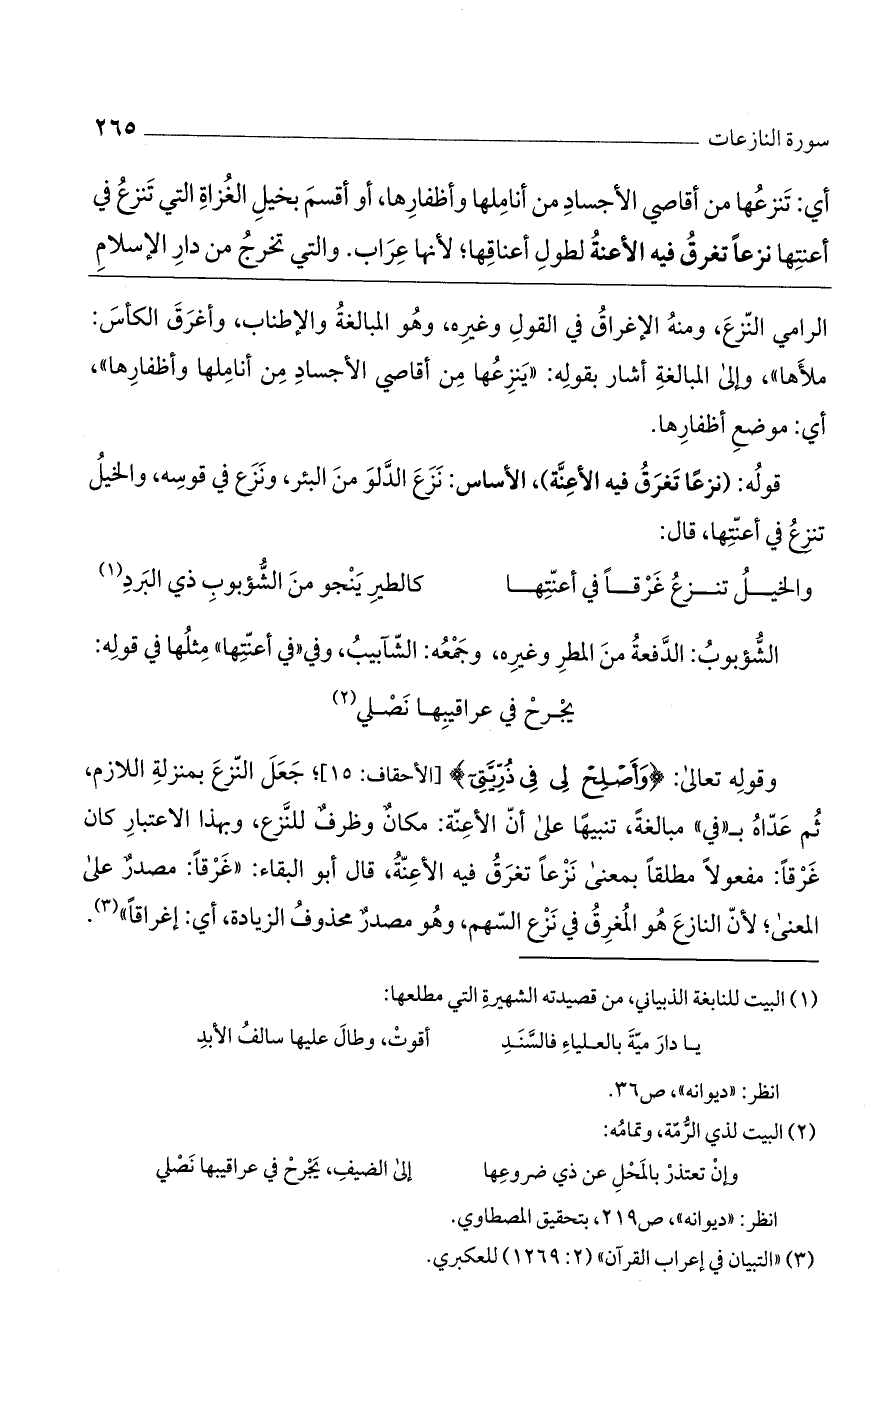 سورة النازعات ٢٦٥
أي: تَنزعُها من أقاصي الأجسادِ من أناملِها وأظفارِها، أو أقسمَ بخيلِ الغُزاةِ التي تَنزعُ في
أعنتِها نزعاً تغرقُ فيه الأعنةُ لطولِ أعناقِها؛ لأنها عِرَاب. والتي تخرجُ من دارِ الإسلامِ
الرامي النّزعَ، ومنهُ الإغراقُ في القولِ وغيرِه، وهُو المبالغةُ والإطناب، وأغرَقَ الكأسَ:
ملأَها»، وإلىٰ المبالغةِ أشار بقولِه: «يَنزِعُها مِن أقاصي الأجسادِ مِن أنامِلها وأظفارِها»،
أي: موضعِ أظفارِها.
قولُه: (نزعًا تَغرَقُ فيه الأعِنَّة)، الأساس: نَزَعَ الدَّلوَ منَ البئر، ونَزَع في قوسِه، والخيلُ
تنزِعُ في أعنّتِها، قال:
والخيـــلُ تنـــزعُ غَرْقـــاً في أعنّتِهـــا كالطيرِ يَنْجو منَ الشُّؤبوبِ ذي البَردِ(١)
الشُّؤبوبُ: الدَّفعةُ منَ المطرِ وغيرِه، وجَمْعُه: الشّآبيبُ، وفي«في أعنّتِها» مِثلُها في قولِه:
يجْـرحْ في عراقيبِهـا نَصْـلي(٢)
وقولِه تعالىٰ: ﴿وَأَصْلِحْ لِى فِى ذُرِّيَّتِىٓ﴾ [الأحقاف: ١٥]؛ جَعَلَ النّزعَ بمنزلةِ اللازم،
ثُم عَدّاهُ بـ«في» مبالغةً، تنبيهًا علىٰ أنّ الأعِنّة: مكانٌ وظرفٌ للنَّزع، وبهذا الاعتبارِ كان
غَرْقاً: مفعولاً مطلقاً بمعنىٰ نَزْعاً تغرَقُ فيه الأعِنّةُ، قال أبو البقاء: «غَرْقاً: مصدرٌ علىٰ
المعنىٰ؛ لأنّ النازعَ هُو المُغرِقُ في نَزْعِ السّهم، وهُو مصدرٌ محذوفُ الزيادة، أي: إغراقاً»(٣).
(١) البيت للنابغة الذبياني، من قصيدته الشهيرةِ التي مطلعها:
يـا دارَ ميّةَ بالعـلياءِ فالسَّنَـدِ أقوتْ، وطالَ عليها سالفُ الأبدِ
انظر: «ديوانه»، ص٣٦.
(٢) البيت لذي الرُّمّة، وتمامُه:
وإنْ تعتذرْ بالمَحْلِ عن ذي ضروعِها إلىٰ الضيفِ، يَجْرحْ في عراقيبها نَصْلي
انظر: «ديوانه»، ص٢١٩، بتحقيق المصطاوي.
(٣) «التبيان في إعراب القرآن» (٢: ١٢٦٩) للعكبري.